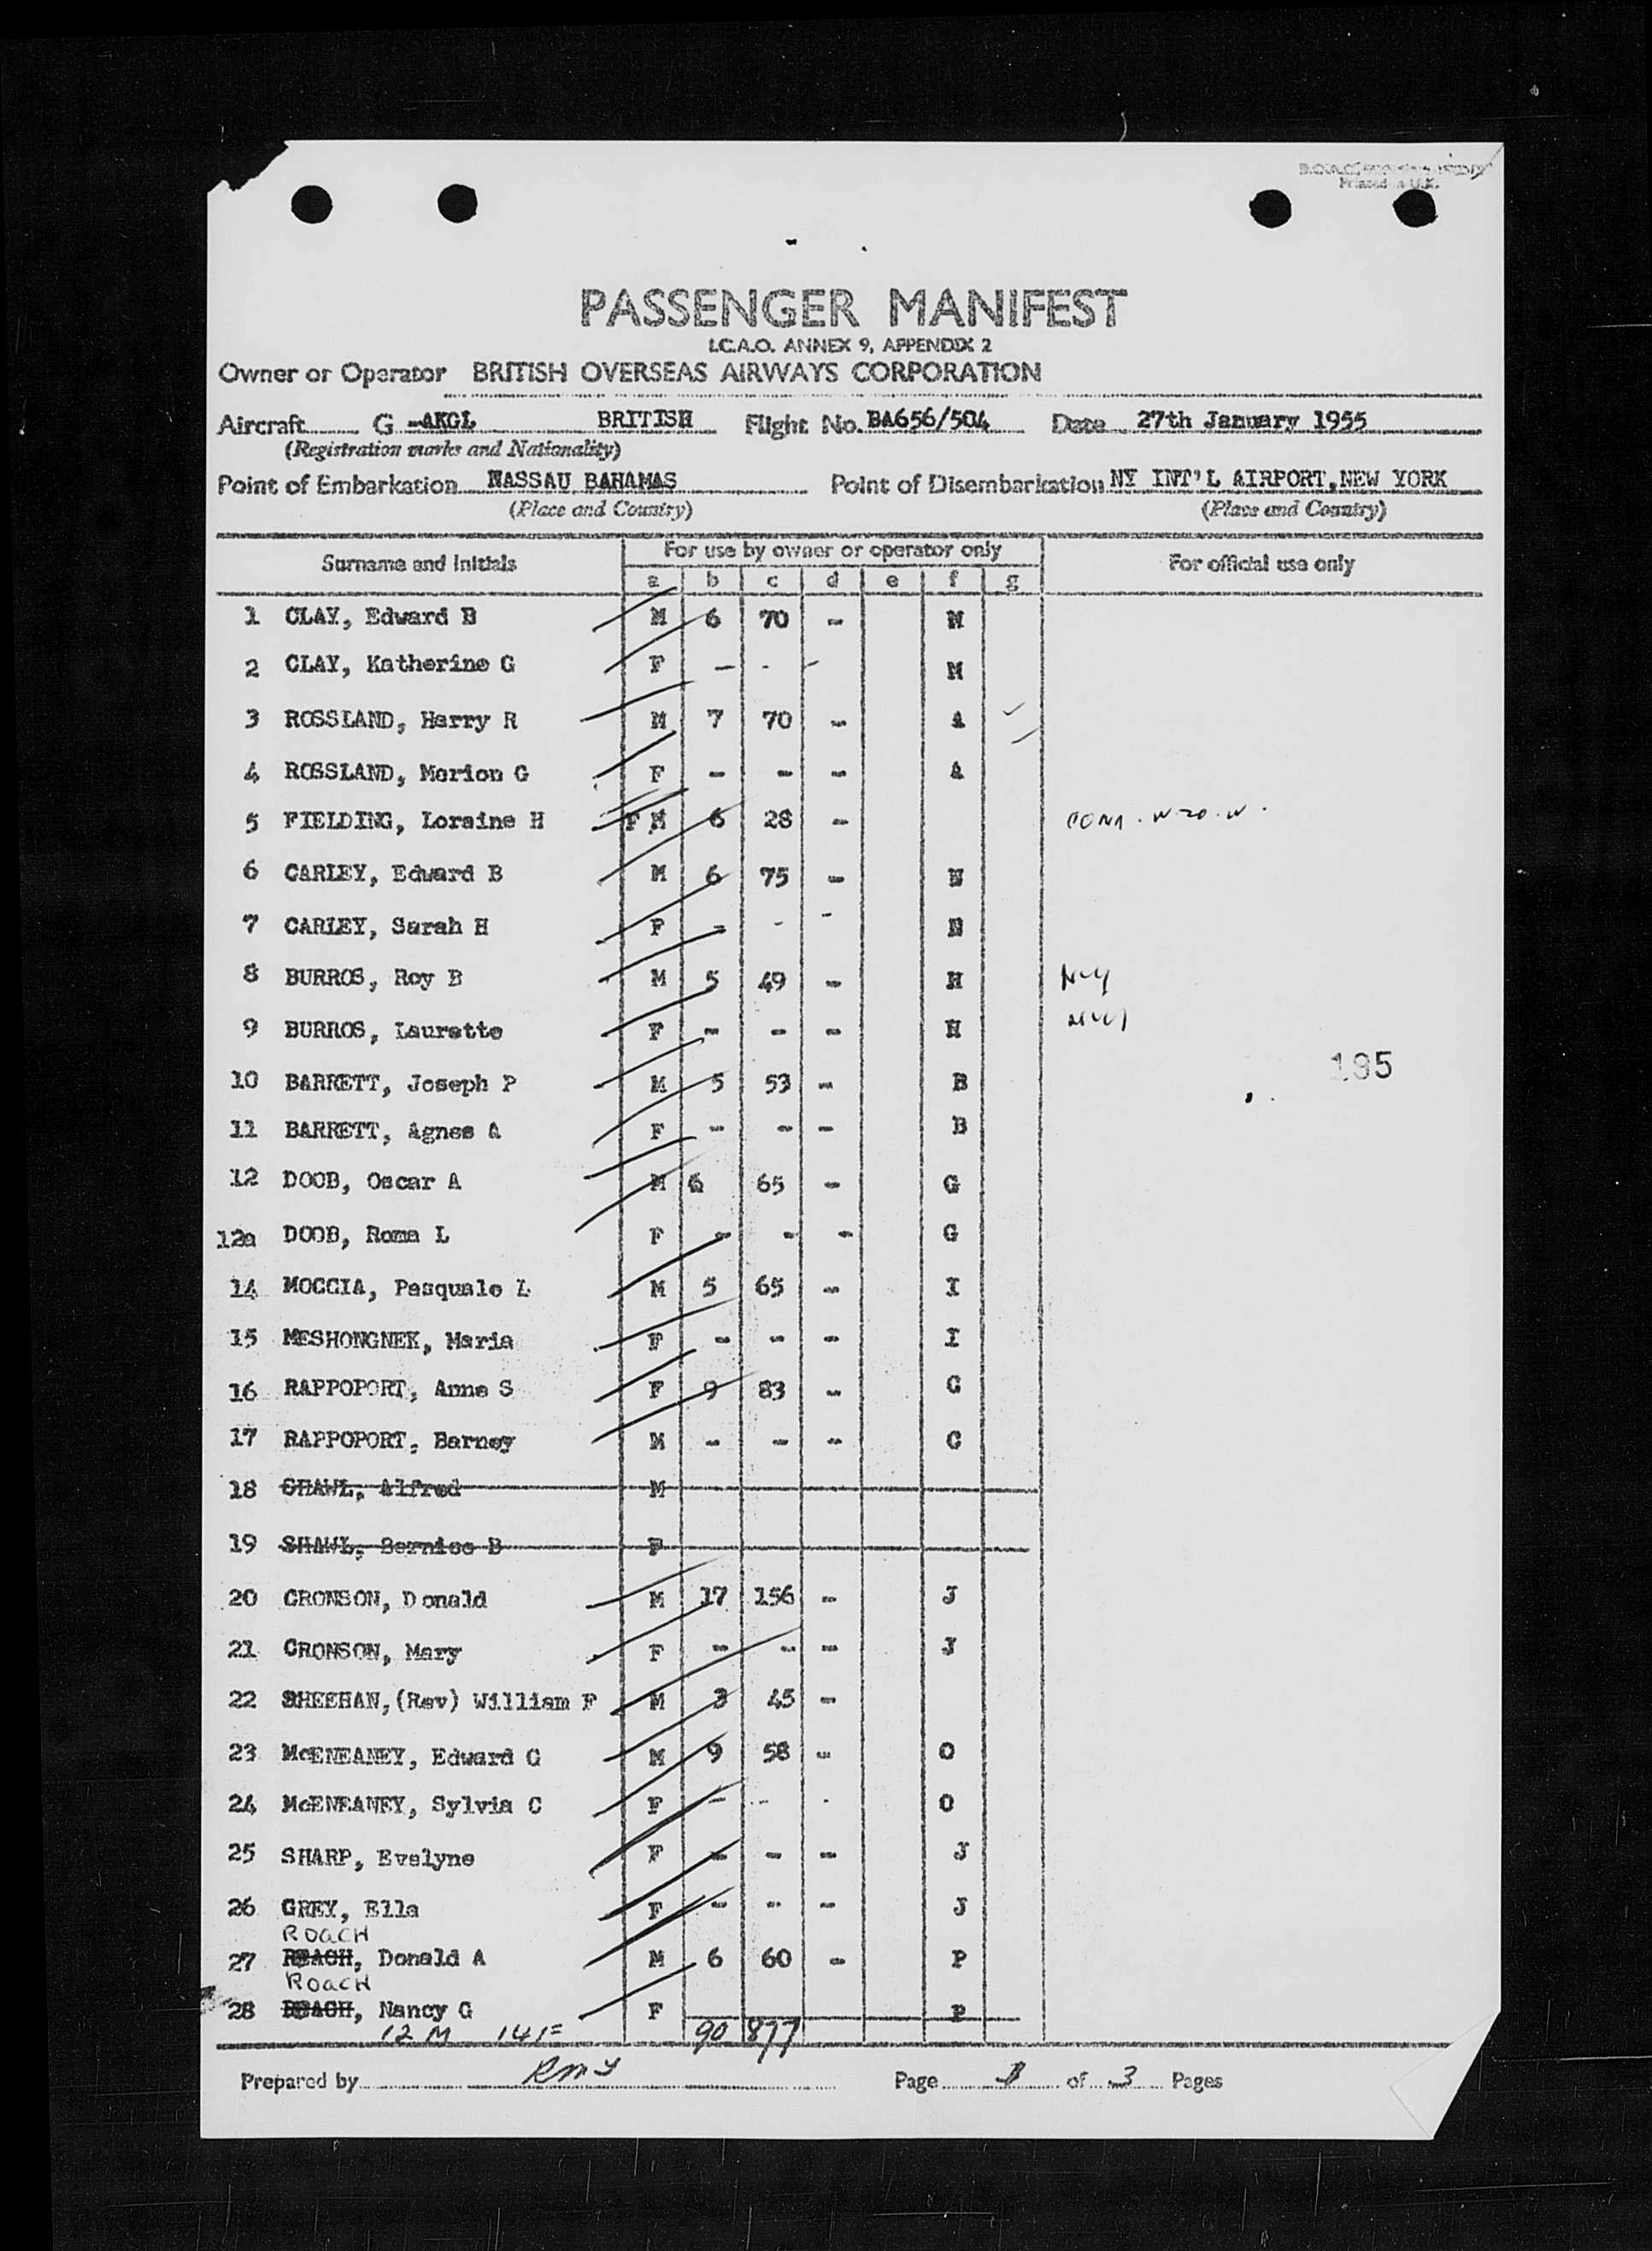 Printed in U.K.
PASSENGER MANIFEST
I.C.A.O. ANNEX 9, APPENDIX 2
Owner or Operator BRITISH OVERSEAS AIRWAYS CORPORATION
Aircraft G -AKGL BRITISH Flight No. BA656/504 Date 27th January 1955
(Registration marks and Nationality)
Point of Embarkation NASSAU BAHAMAS Point of Disembarkation NY INT'L AIRPORT, NEW YORK
(Place and Country) (Place and Country)
Surname and Initials For use by owner or operator only For official use only
a b c d e f g
1 CLAY, Edward B M 6 70 - M
2 CLAY, Katherine G F - - - M
3 ROSSLAND, Harry R M 7 70 - A
4 ROSSLAND, Marion G F - - - A
5 FIELDING, Loraine H F M 6 28 -
6 CARLEY, Edward B M 6 75 - N
7 CARLEY, Sarah H F - - - N
8 BURROS, Roy B M 5 49 - H
9 BURROS, Laurette F - - - H
10 BARRETT, Joseph P M 5 53 - B
185
11 BARRETT, Agnes A F - - - B
12 DOOB, Oscar A M 6 65 - G
12a DOOB, Roma L F - - - G
14 MOCCIA, Pasquale L M 5 65 - I
15 MESHONGNEK, Maria F - - - I
16 RAPPOPORT, Anne S F 9 83 - C
17 RAPPOPORT, Barney M - - - C
18 SHAWL, Alfred M
19 SHAWL, Bernice B F
20 CRONSON, Donald M 17 156 - J
21 CRONSON, Mary F - - - J
22 SHEEHAN, (Rev) William F M 3 45 -
23 McENEANEY, Edward G M 9 58 - O
24 McENEANEY, Sylvia C F - - - O
25 SHARP, Evelyne F - - - J
26 GREY, Ella F - - - J
ROACH
27 REACH, Donald A M 6 60 - P
ROACH
28 REACH, Nancy G F P
12 M 14 F 90 877
Prepared by Page of 3 Pages